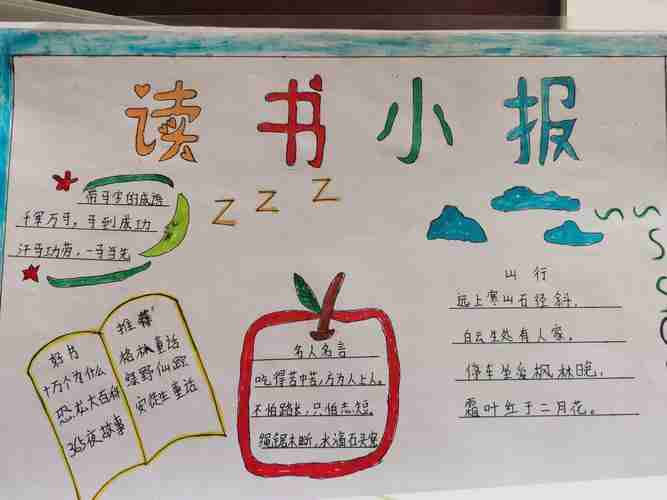 读书小报
带马字的成语
千军万马，马到成功
汗马功劳，一马当先
Z Z Z
山行
远上寒山石径斜，
白云生处有人家，
停车坐爱枫林晚，
霜叶红于二月花。
好书
十万个为什么
恐龙大百科
365夜故事
推荐
格林童话
绿野仙踪
安徒生童话
名人名言
吃得苦中苦，方为人上人。
不怕路长，只怕志短。
绳锯木断，水滴石